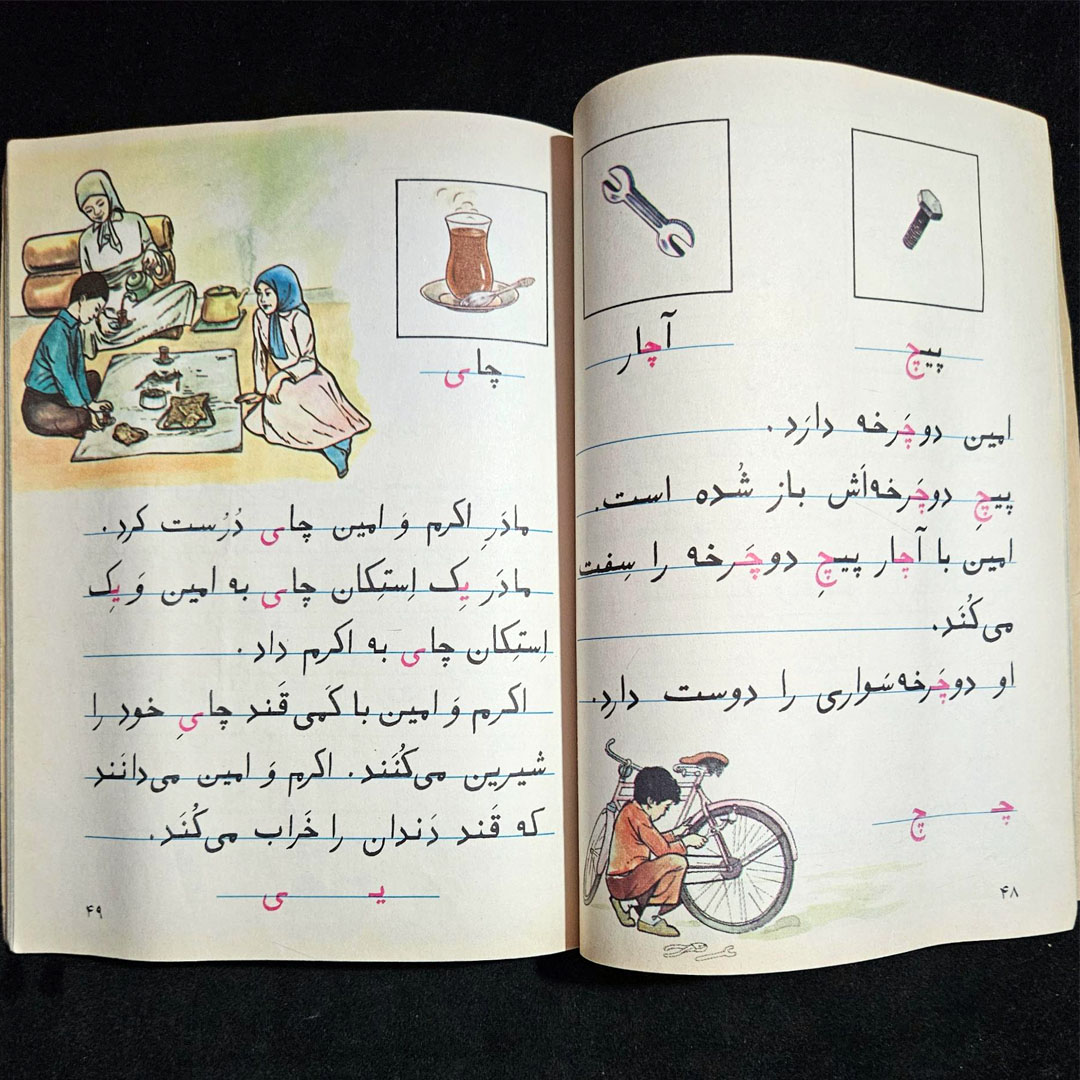 پیچ
آچار
امین دوچَرخه دارَد.
پیچِ دوچَرخه‌اَش باز شُده است.
امین با آچار پیچِ دوچَرخه را سِفت
می‌کُنَد.
او دوچَرخه‌سَواری را دوست دارد.
چـ چ
۴۸
چای
مادَرِ اکرم وَ امین چای دُرُست کرد.
مادَر یِک اِستِکان چای به امین وَ یِک
اِستِکان چای به اکرم داد.
اکرم وَ امین با کَمی قَند چایِ خود را
شیرین می‌کُنَند. اکرم وَ امین می‌دانَند
که قَند دَندان را خَراب می‌کُنَد.
یـ ی
۴۹